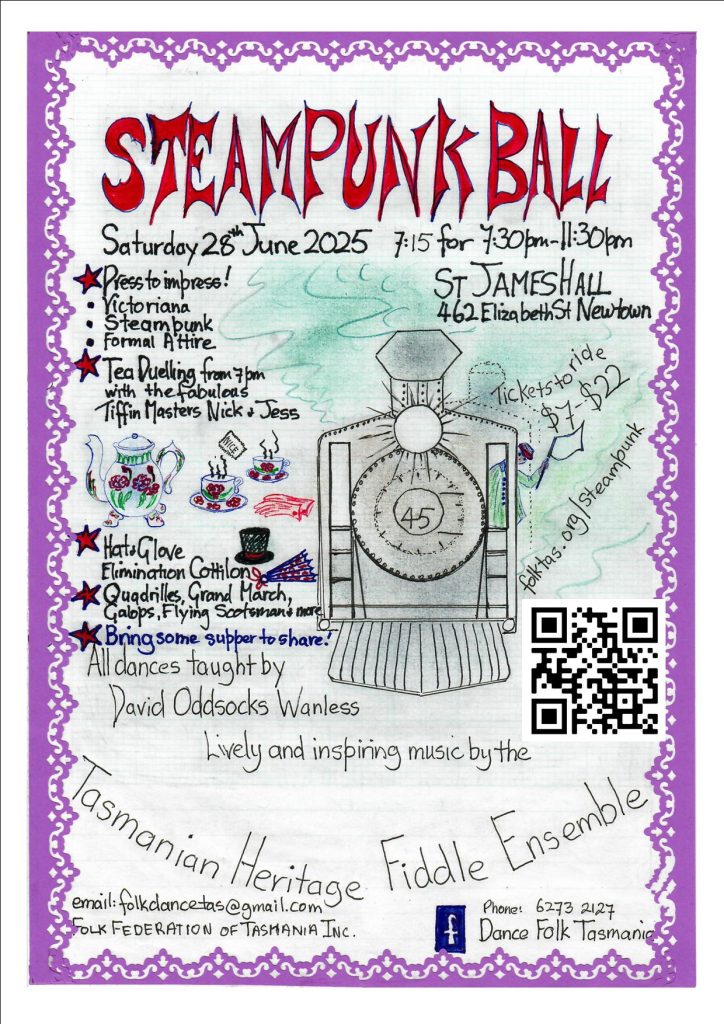 STEAMPUNK BALL
Saturday 28th June 2025 7:15 for 7:30pm-11:30pm
ST JAMES HALL
462 Elizabeth St Newtown
Dress to impress!
Victoriana
Steampunk
Formal Attire
Tea Duelling from 7pm
with the fabulous
Tiffin Masters Nick & Jess
Tickets to ride
$7-$22
folktas.org/steampunk
NICE
45
Hat & Glove
Elimination Cotillon
Quadrilles, Grand March,
Galops, Flying Scotsman & more
Bring some supper to share!
All dances taught by
David Oddsocks Wanless
Lively and inspiring music by the
Tasmanian Heritage Fiddle Ensemble
email: folkdancetas@gmail.com
FOLK FEDERATION OF TASMANIA INC.
f
Phone: 6273 2127
Dance Folk Tasmania